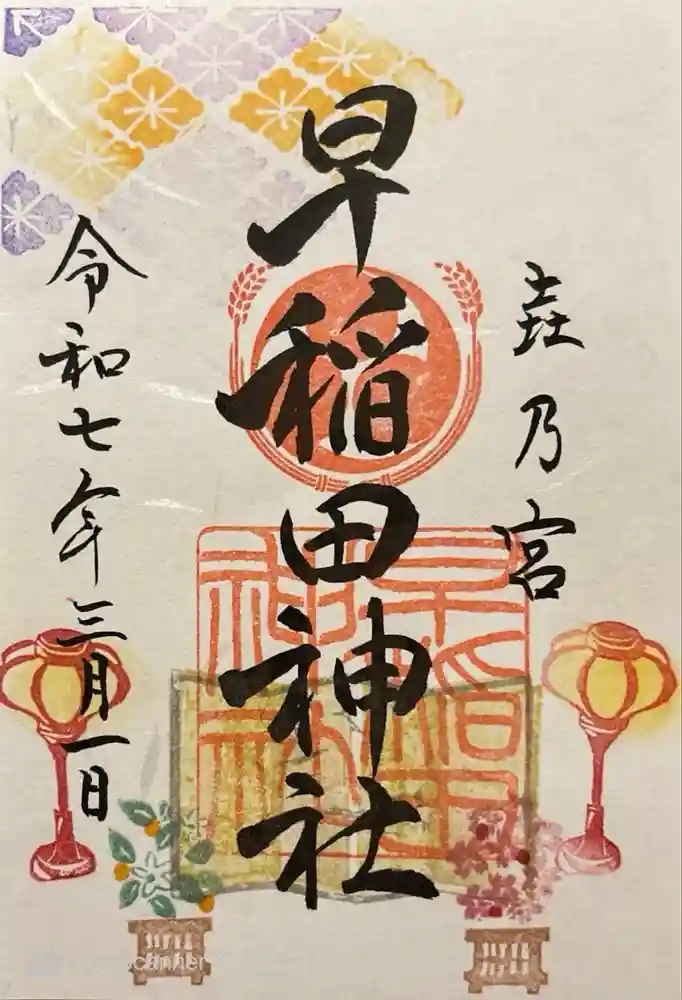 㐂乃宮
早稲田神社
令和七年三月一日
早稲田神社